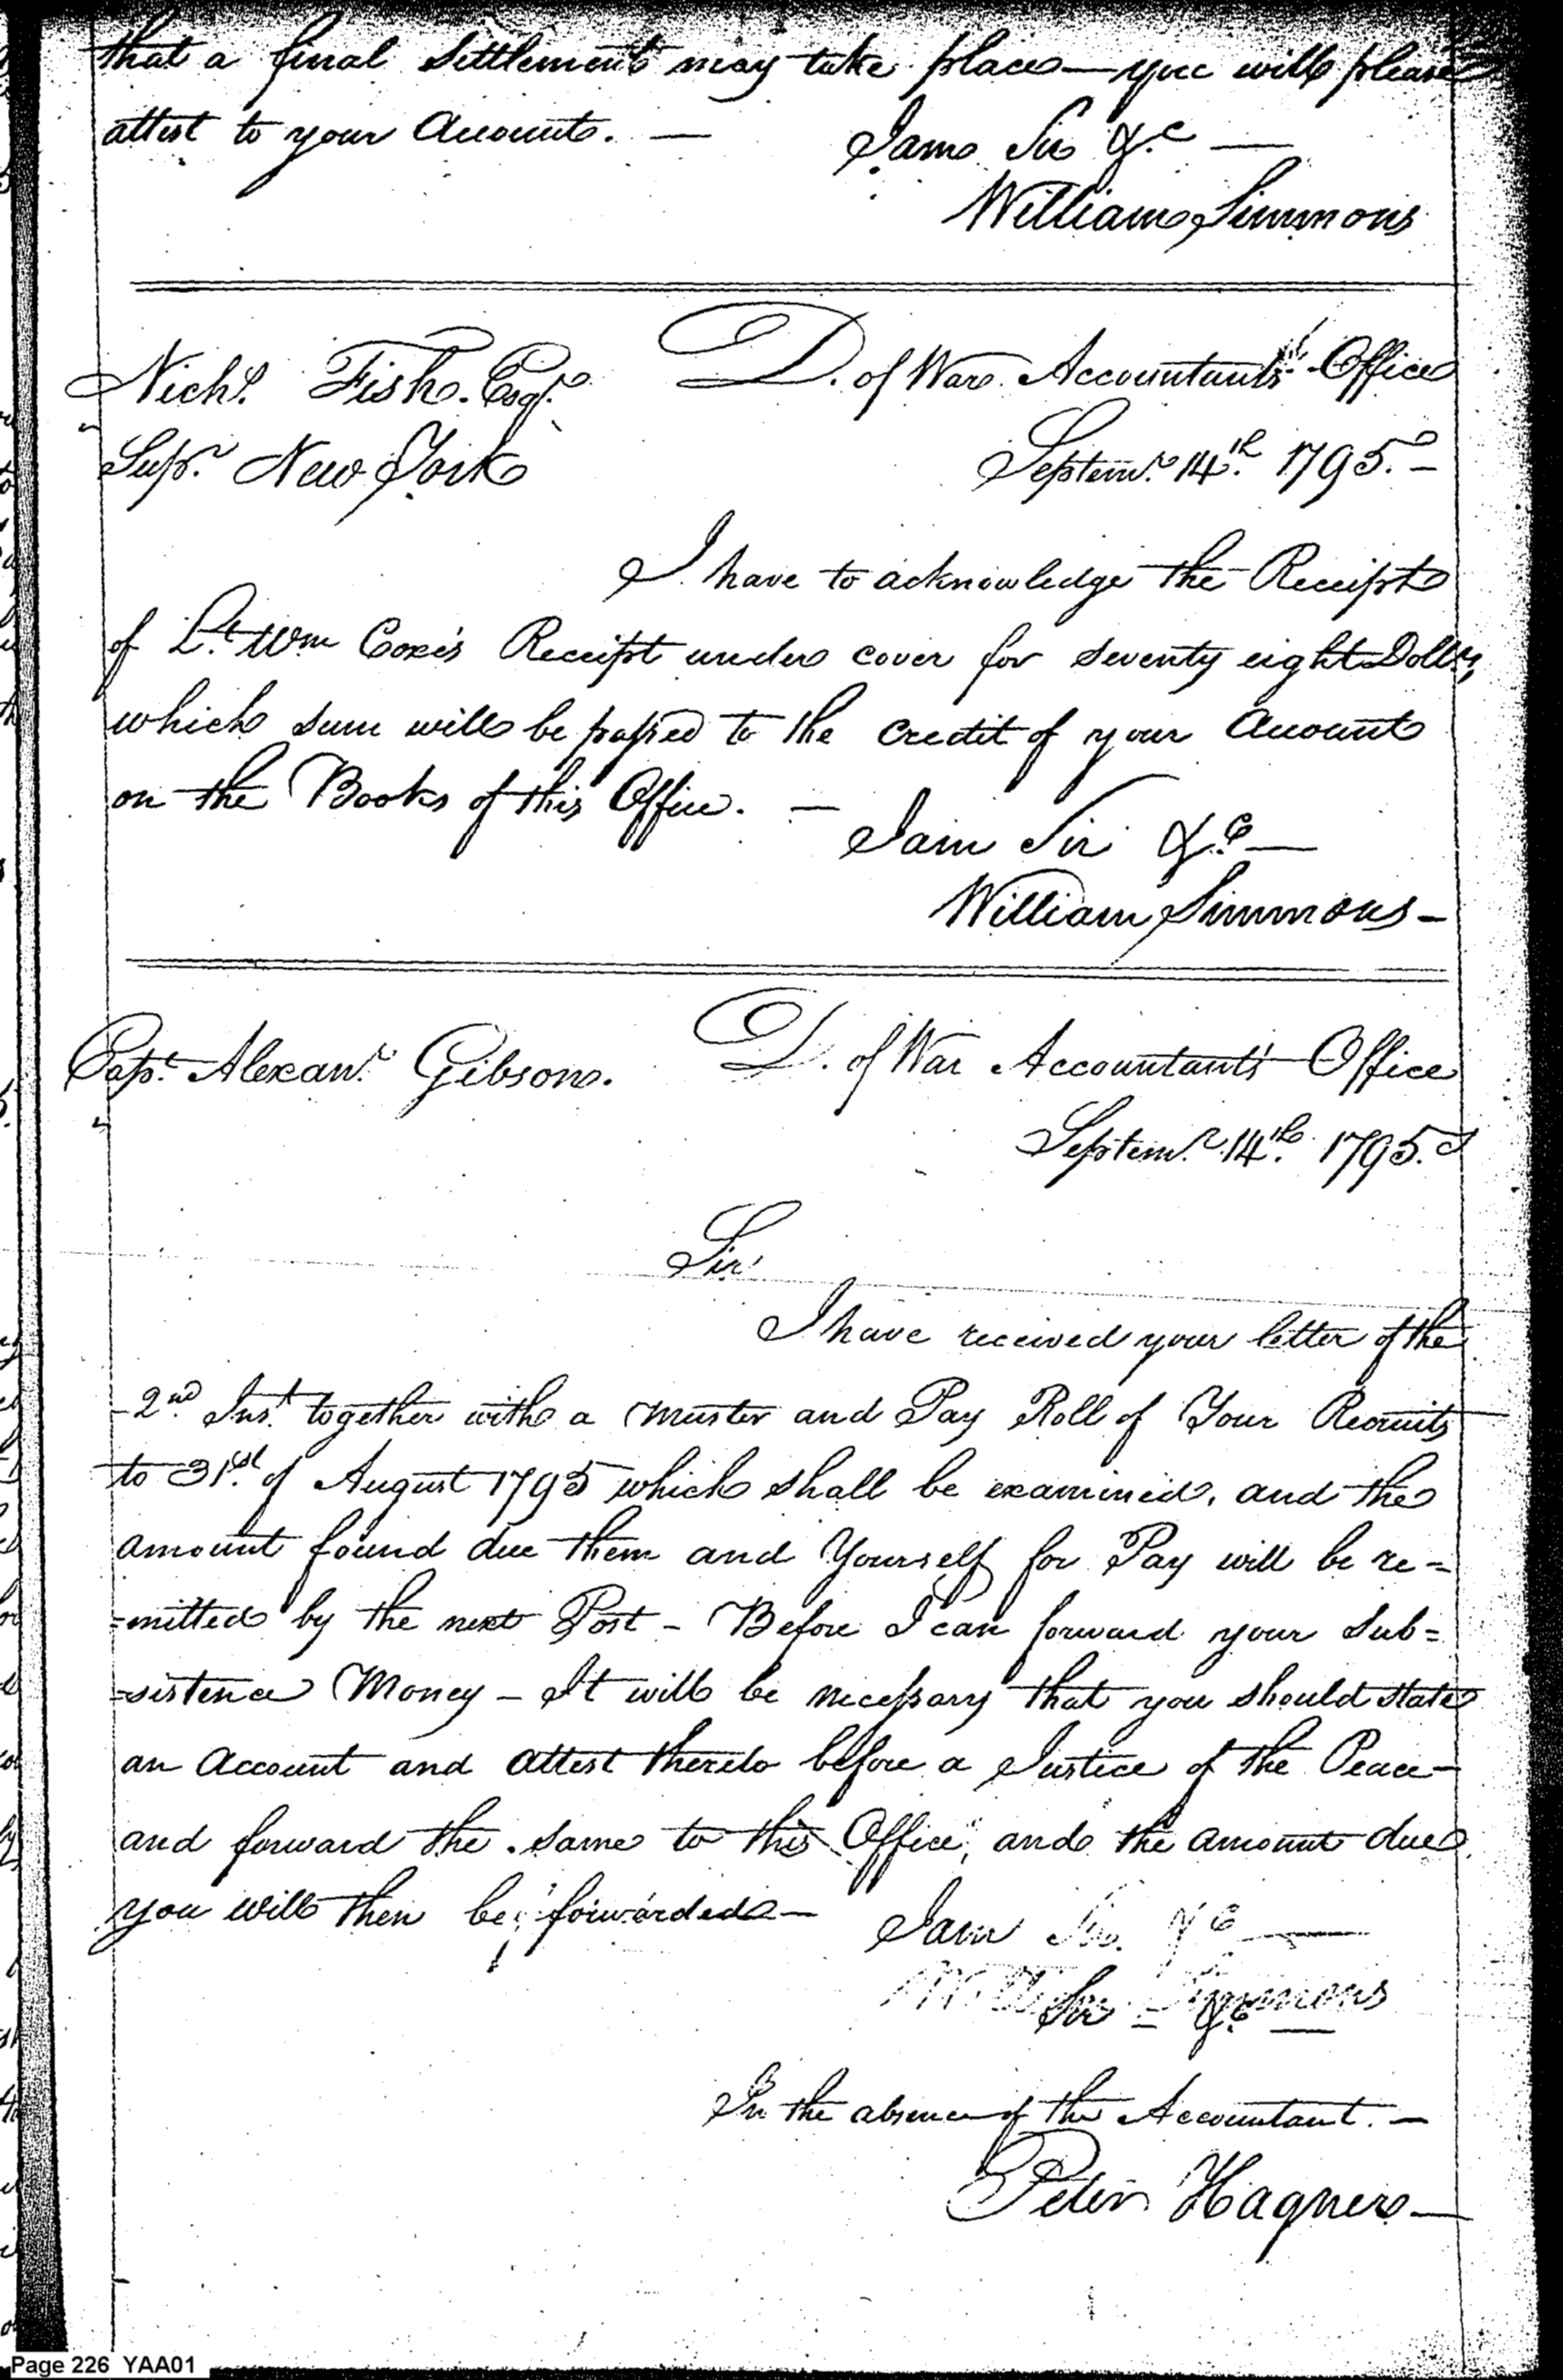 that a final Settlement may take place — you will please
attest to your Account. —
I am Sir &c —
William Simmons
Nichs. Fish Esqr.
D. of War Accountants Office
Supr. New York
Septemr. 14th. 1795. —
I have to acknowledge the Receipt
of Lt. Wm Coxe's Receipt under cover for seventy eight Dolls.,
which sum will be passed to the credit of your Account
on the Books of this Office. —
I am Sir &c —
William Simmons —
Capt. Alexanr. Gibson.
D. of War Accountant's Office
Septemr. 14th. 1795.
Sir
I have received your letter of the
2nd. Inst. together with a Muster and Pay Roll of Your Recruits
to 31st. of August 1795 which shall be examined, and the
amount found due them and Yourself for Pay will be re=
=mitted by the next Post – Before I can forward your sub=
=sistence Money – It will be necessary that you should state
an Account and attest thereto before a Justice of the Peace –
and forward the same to this Office, and the amount due
you will then be forwarded —
I am Sir &c —
William Simmons
Sir – &c —
In the absence of the Accountant. —
Peter Hagner —
Page 226 YAA01